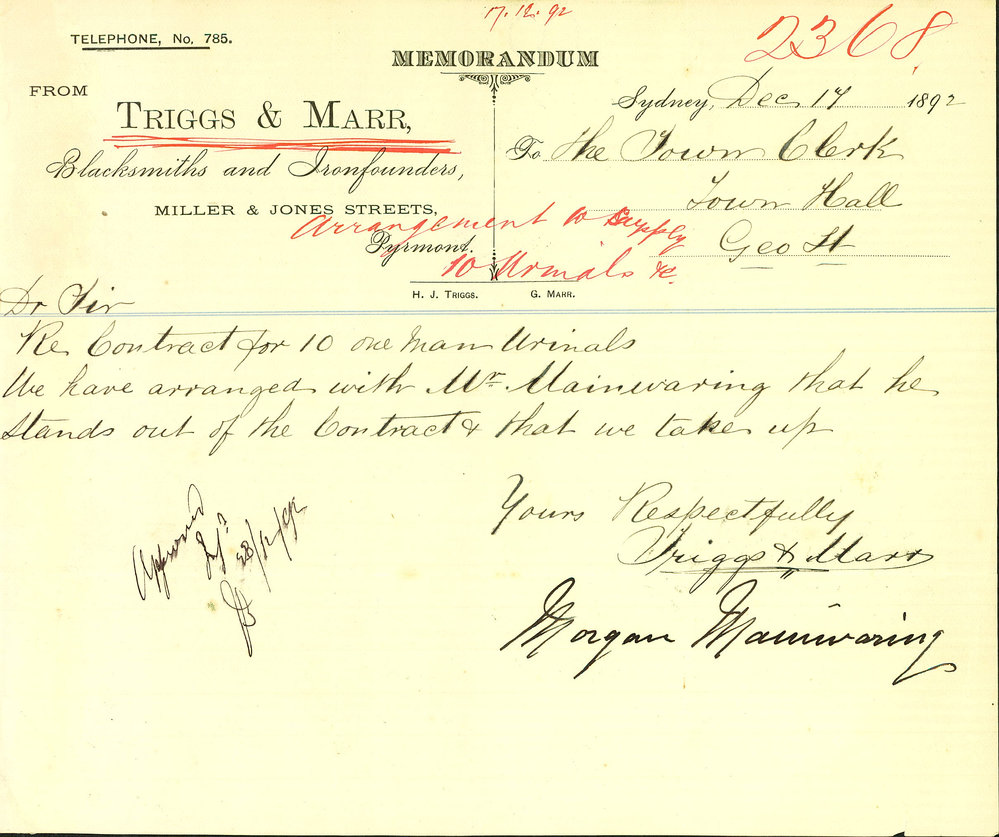 17.12.92
2368
TELEPHONE, No. 785.
MEMORANDUM
FROM
TRIGGS & MARR,
Blacksmiths and Ironfounders,
MILLER & JONES STREETS,
Pyrmont.
H. J. TRIGGS. G. MARR.
Sydney, Dec 17 1892
To The Town Clerk
Town Hall
Geo St
Arrangement to supply
10 Urinals &c.
Dr Sir
Re Contract for 10 one man Urinals
We have arranged with Mr. Mainwaring that he
stands out of the Contract & that we take up
Yours Respectfully
Triggs & Marr
Morgan Mainwaring
Approved
28/12/92